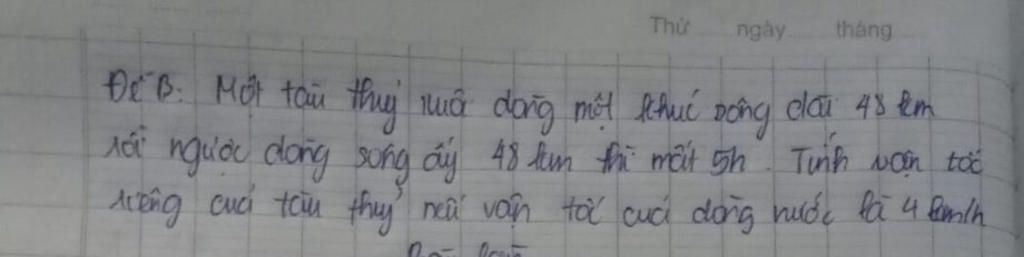 Thứ ngày tháng
Đề B: Một tàu thuỷ xuôi dòng một khúc sông dài 48 km
rồi ngược dòng sông ấy 48 km thì mất 5h. Tính vận tốc
riêng của tàu thuỷ nếu vận tốc của dòng nước là 4 km/h